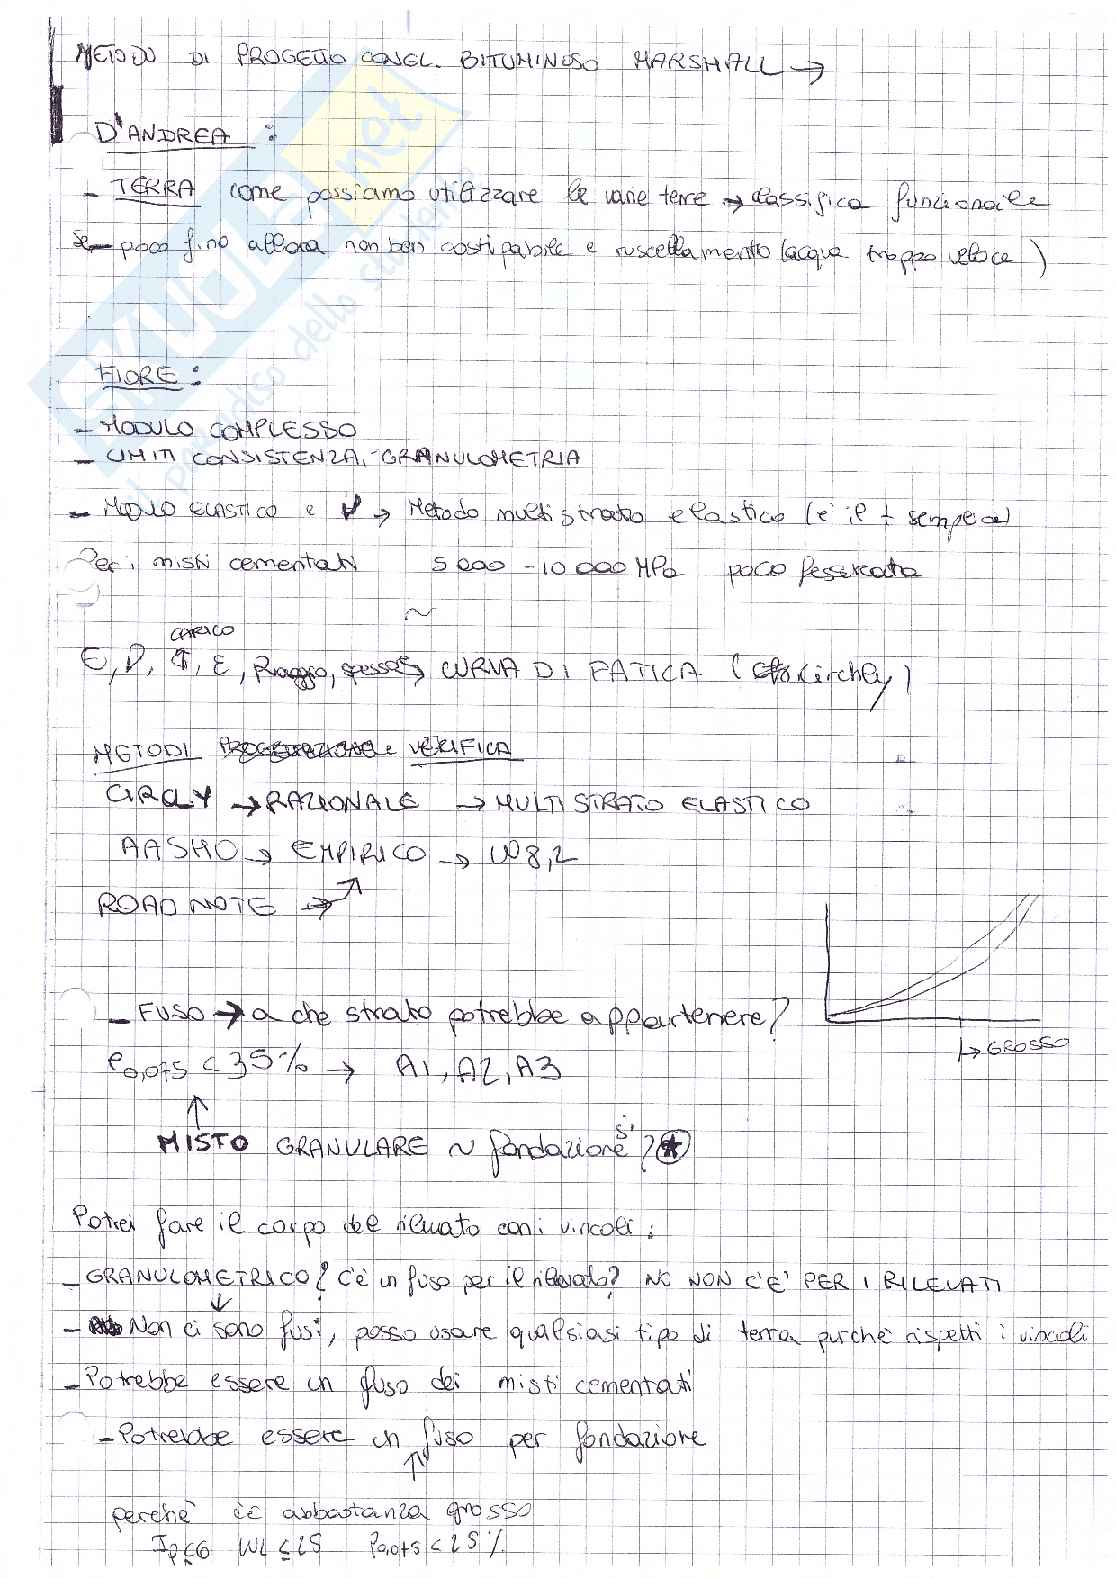 METODO DI PROGETTO CONGL. BITUMINOSO MARSHALL →
D'ANDREA :
- TERRA come possiamo utilizzare le varie terre → classifica funzionale
se poco fino allora non ben costipabile e ruscellamento (acqua troppo veloce)
FIORE :
- MODULO COMPLESSO
- LIMITI CONSISTENZA, GRANULOMETRIA
- MODULO ELASTICO e → Metodo multistrato elastico (è il + semplice)
Per i misti cementati 5000 - 10000 MPa poco fessurato
~
CARICO
E, ν, σ, ε, Raggio, spessore → CURVA DI FATICA ( Kirchley)
METODI PROGETTAZIONE e VERIFICA
GRAY → RAZIONALE → MULTISTRATO ELASTICO
AASHO → EMPIRICO → W8,2
ROAD NOTE →
- FUSO → a che strato potrebbe appartenere?
→ GROSSO
P0,075 < 35% → A1, A2, A3
MISTO GRANULARE ~ fondazione? SI
Potrei fare il corpo del rilevato con i vincoli:
- GRANULOMETRICO? C'è un fuso per il rilevato? NO NON C'E' PER I RILEVATI
- Non ci sono fusi, posso usare qualsiasi tipo di terra purchè rispetti i vincoli
- Potrebbe essere un fuso dei misti cementati
- Potrebbe essere un fuso per fondazione
perchè è abbastanza grosso
Ip≤6 WL ≤25 P0,075 < 15%